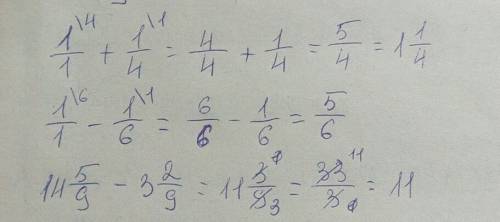 1\4/1 + 1\1/4 = 4/4 + 1/4 = 5/4 = 1 1/4
1\6/1 - 1\1/6 = 6/6 - 1/6 = 5/6
14 5/9 - 3 2/9 = 11 3/9 3 = 33 11/3 1 = 11